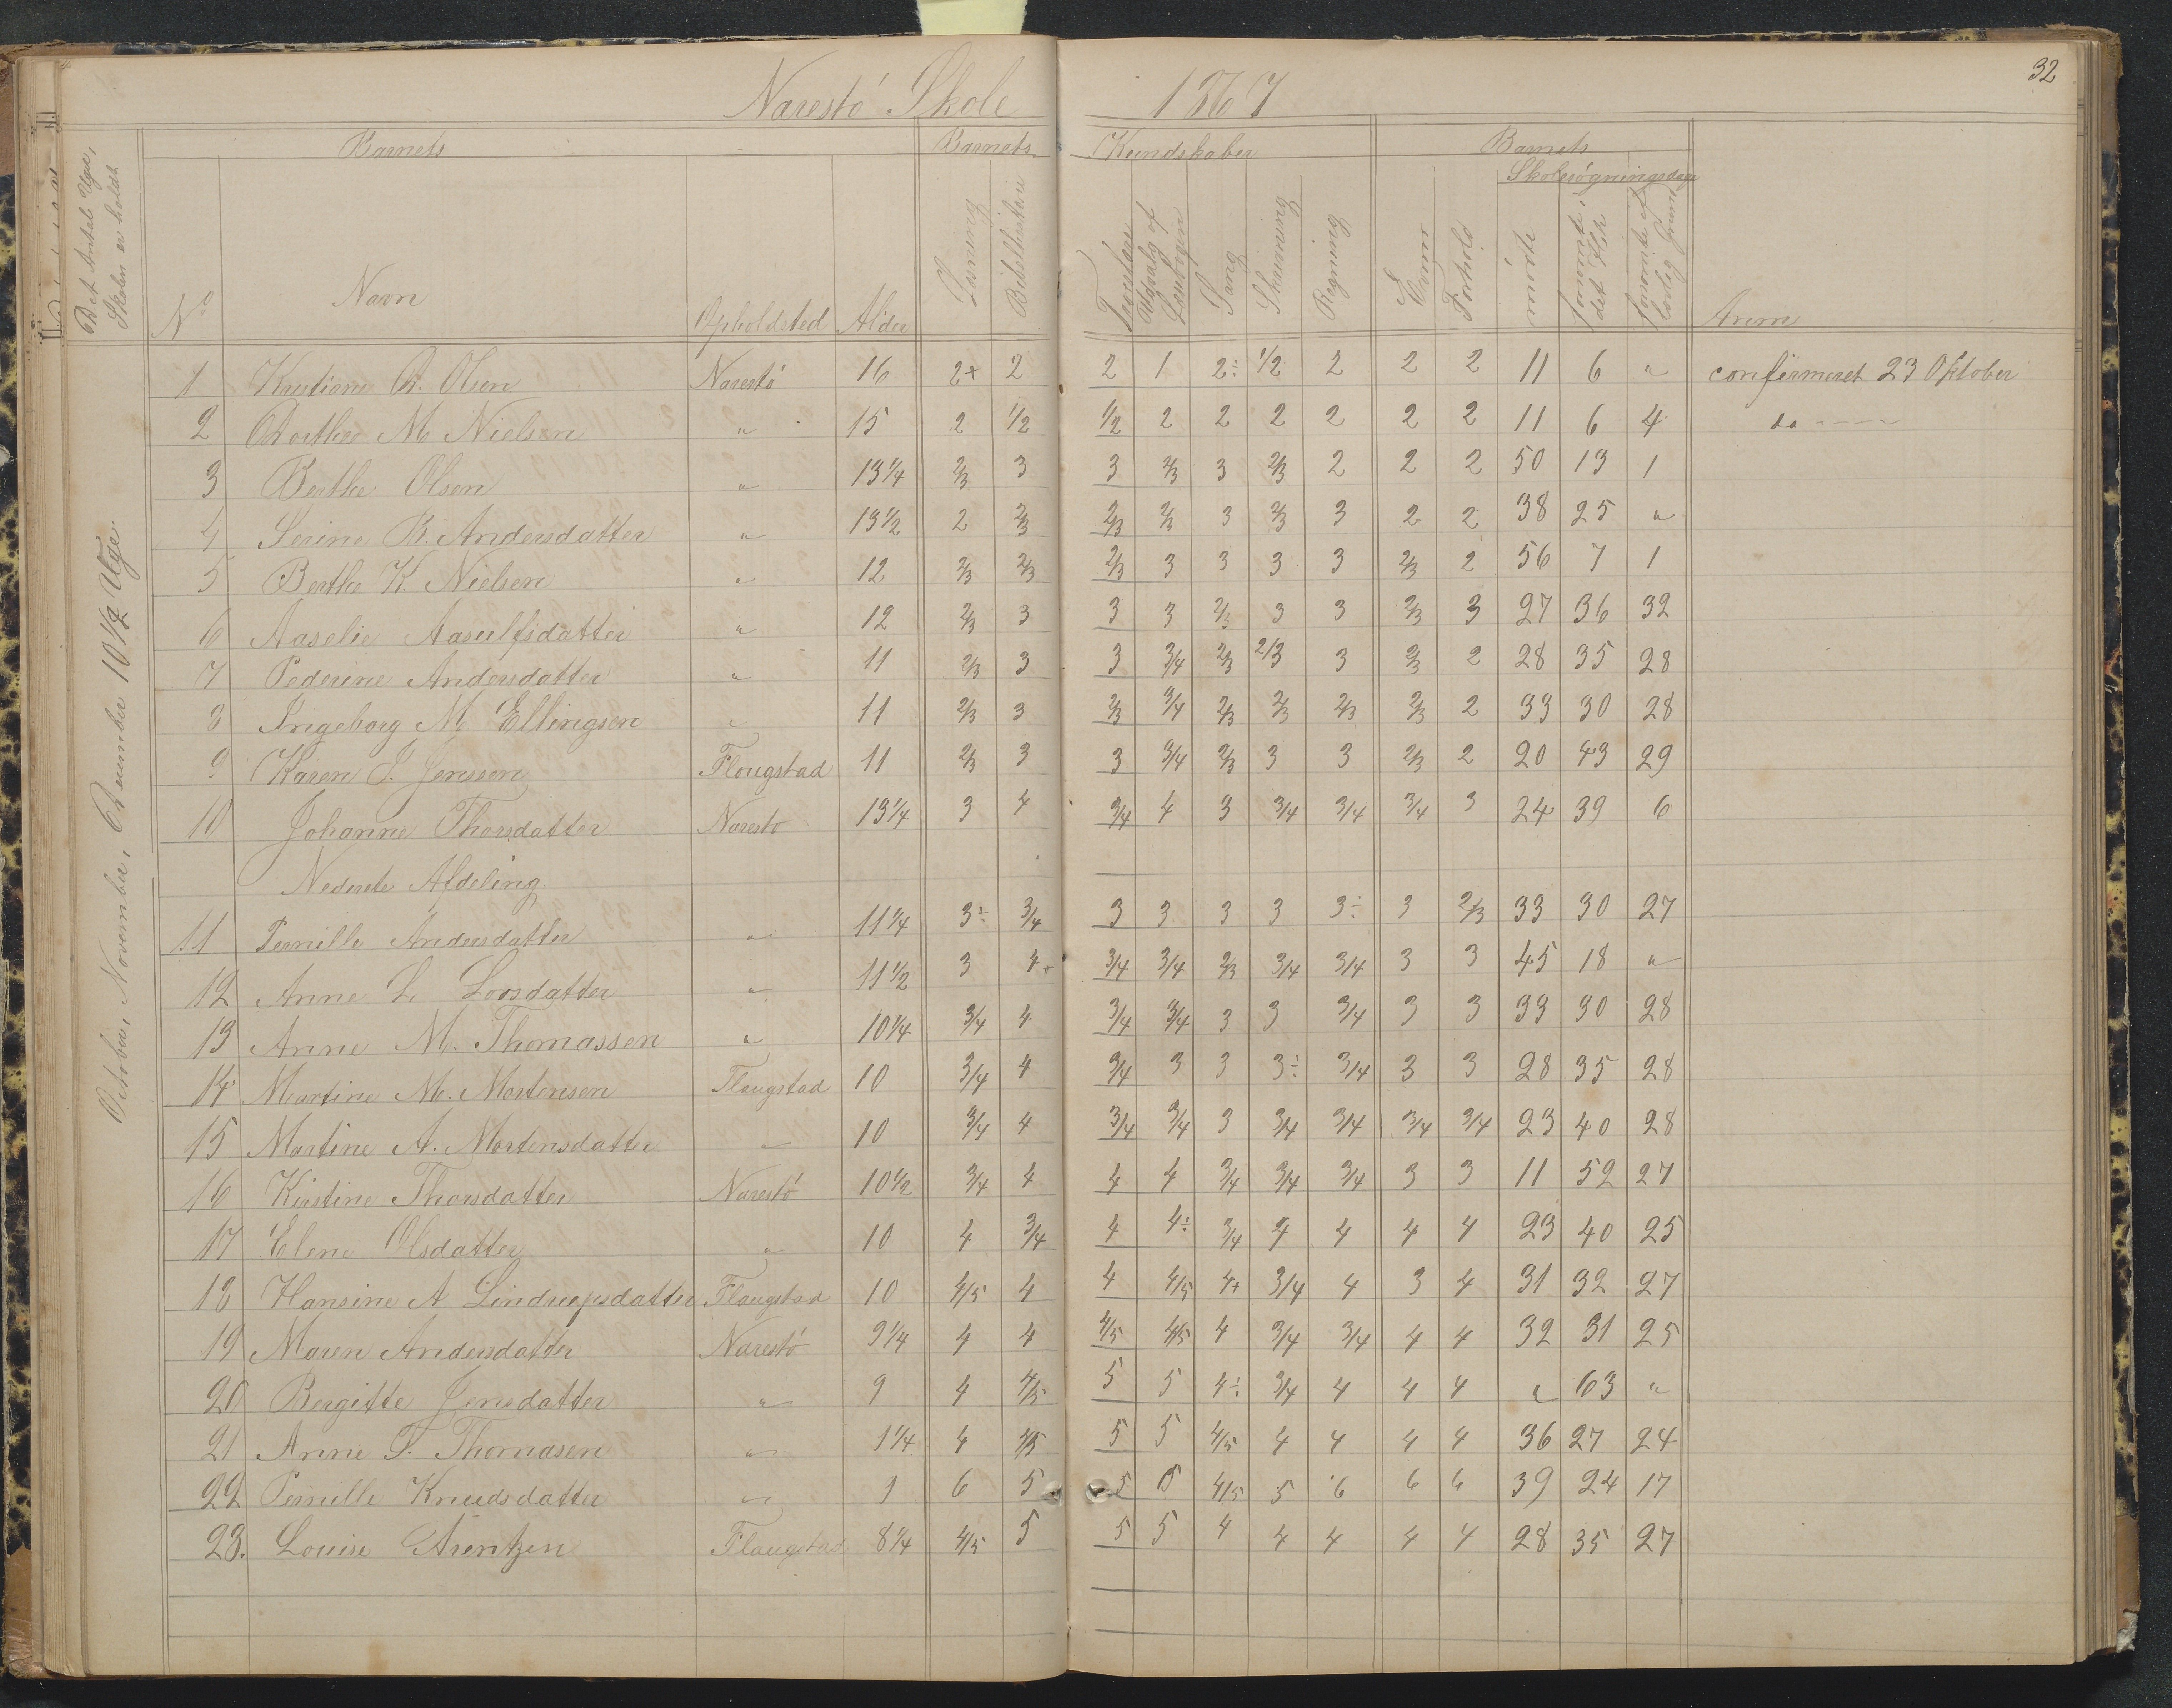 32
Narestö Skole 1867
Det Antal Uger, Skolen er holdt
Barnets
Barnets Kundskaber
Barnets
Skolesøgningsdage
No Navn Opholdsted Alder Læsning Bibelhistorie Troeslære Udvalg af Psalmebogen Sang Skrivning Regning Evner Forhold mødte forsømte i det Hele forsømte af lovlig Grund Anm
October, November, December 10 1/2 Uge
1 Kristiane A. Olsen Narestö 16 2+ 2 2 1 2÷ 1/2 2 2 2 11 6 " confirmeret 23 Oktober
2 Dorthe M Nielsen " 15 2 1/2 1/2 2 2 2 2 2 2 11 6 4 do ----
3 Berthe Olsen " 13 1/4 2/3 3 3 2/3 3 2/3 2 2 2 50 13 1
4 Serine B. Andersdatter " 13 1/2 2 2/3 2/3 2/3 3 2/3 3 2 2 38 25 "
5 Berthe K. Nielsen " 12 2/3 2/3 2/3 3 3 3 3 2/3 2 56 7 1
6 Aaselie Aasulfsdatter " 12 2/3 3 3 3 2/3 3 3 2/3 3 27 36 32
7 Pederine Andersdatter " 11 2/3 3 3 3/4 2/3 2/3 3 2/3 2 28 35 28
8 Ingeborg M. Ellingsen " 11 2/3 3 2/3 3/4 2/3 2/3 2/3 2/3 2 33 30 28
9 Karen J. Jenssen Flougstad 11 2/3 3 3 3/4 2/3 3 3 2/3 2 20 43 29
10 Johanne Thorsdatter Naresto 13 1/4 3 4 3/4 4 3 3/4 3/4 3/4 3 24 39 6
Nederste Afdeling
11 Pernille Andersdatter " 11 1/4 3÷ 3/4 3 3 3 3 3÷ 3 2/3 33 30 27
12 Anne L Loosdatter " 11 1/2 3 4+ 3/4 3/4 2/3 3/4 3/4 3 3 45 18 "
13 Anne M. Thomassen " 10 1/4 3/4 4 3/4 3/4 3 3 3/4 3 3 33 30 28
14 Martine M. Mortensen Flougstad 10 3/4 4 3/4 3 3 3÷ 3/4 3 3 28 35 28
15 Martine A. Mortensdatter " 10 3/4 4 3/4 3/4 3 3/4 3/4 3/4 3/4 23 40 28
16 Kirstine Thorsdatter Narestö 10 1/2 3/4 4 4 4 3/4 3/4 3/4 3 3 11 52 27
17 Elene Olsdatter " 10 4 3/4 4 4÷ 3/4 4 4 4 4 23 40 25
18 Hansine A Flougstad 10 4/5 4 4 4/5 4+ 3/4 4 3 4 31 32 27
19 Maren Andersdatter Narestö 9 1/4 4 4 4/5 4/5 4 3/4 3/4 4 4 32 31 25
20 Bergitte Jensdatter " 9 4 4/5 5 5 4÷ 3/4 4 4 4 " 63 "
21 Anne F. Thomasen " 4 4/5 5 5 4/5 4 4 4 4 36 27 24
22 Pernille Knudsdatter " 9 6 5 5 5 4/5 5 6 6 6 39 24 17
23. Louise Arentzen Flougstad 8 1/4 4/5 5 5 5 4 4 4 4 4 28 35 27